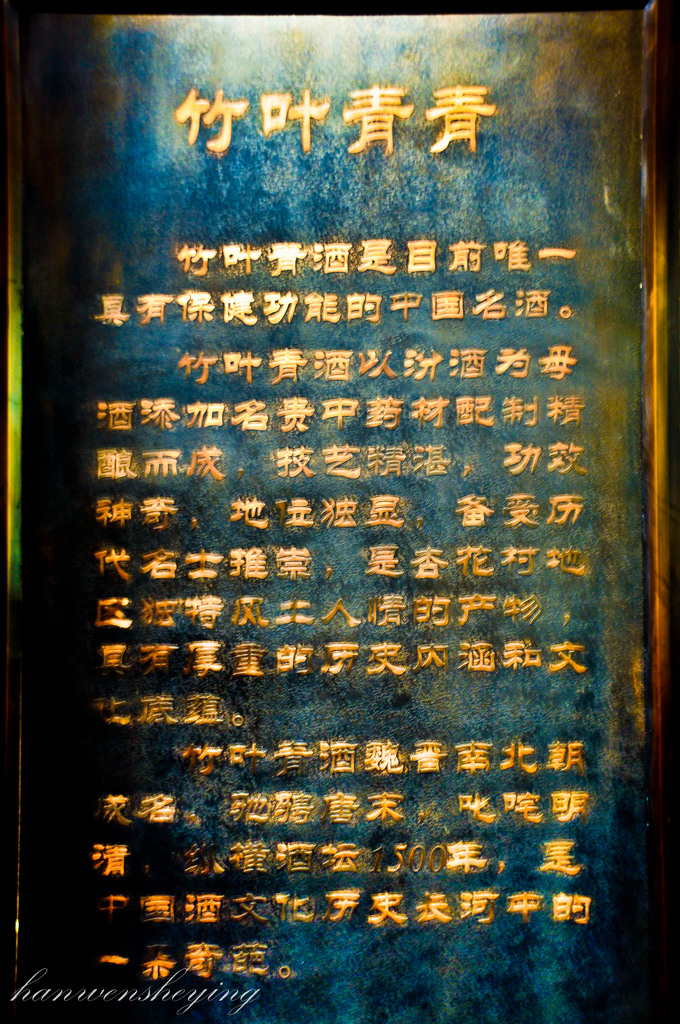 竹叶青青
竹叶青酒是目前唯一
具有保健功能的中国名酒。
竹叶青酒以汾酒为母
酒添加名贵中药材配制精
酿而成，技艺精湛，功效
神奇，地位独显，备受历
代名士推崇，是杏花村地
区独特风土人情的产物，
具有厚重的历史内涵和文
化底蕴。
竹叶青酒魏晋南北朝
成名，驰骋唐宋，叱咤明
清，纵横酒坛1500年，是
中国酒文化历史长河中的
一朵奇葩。
hanwensheying